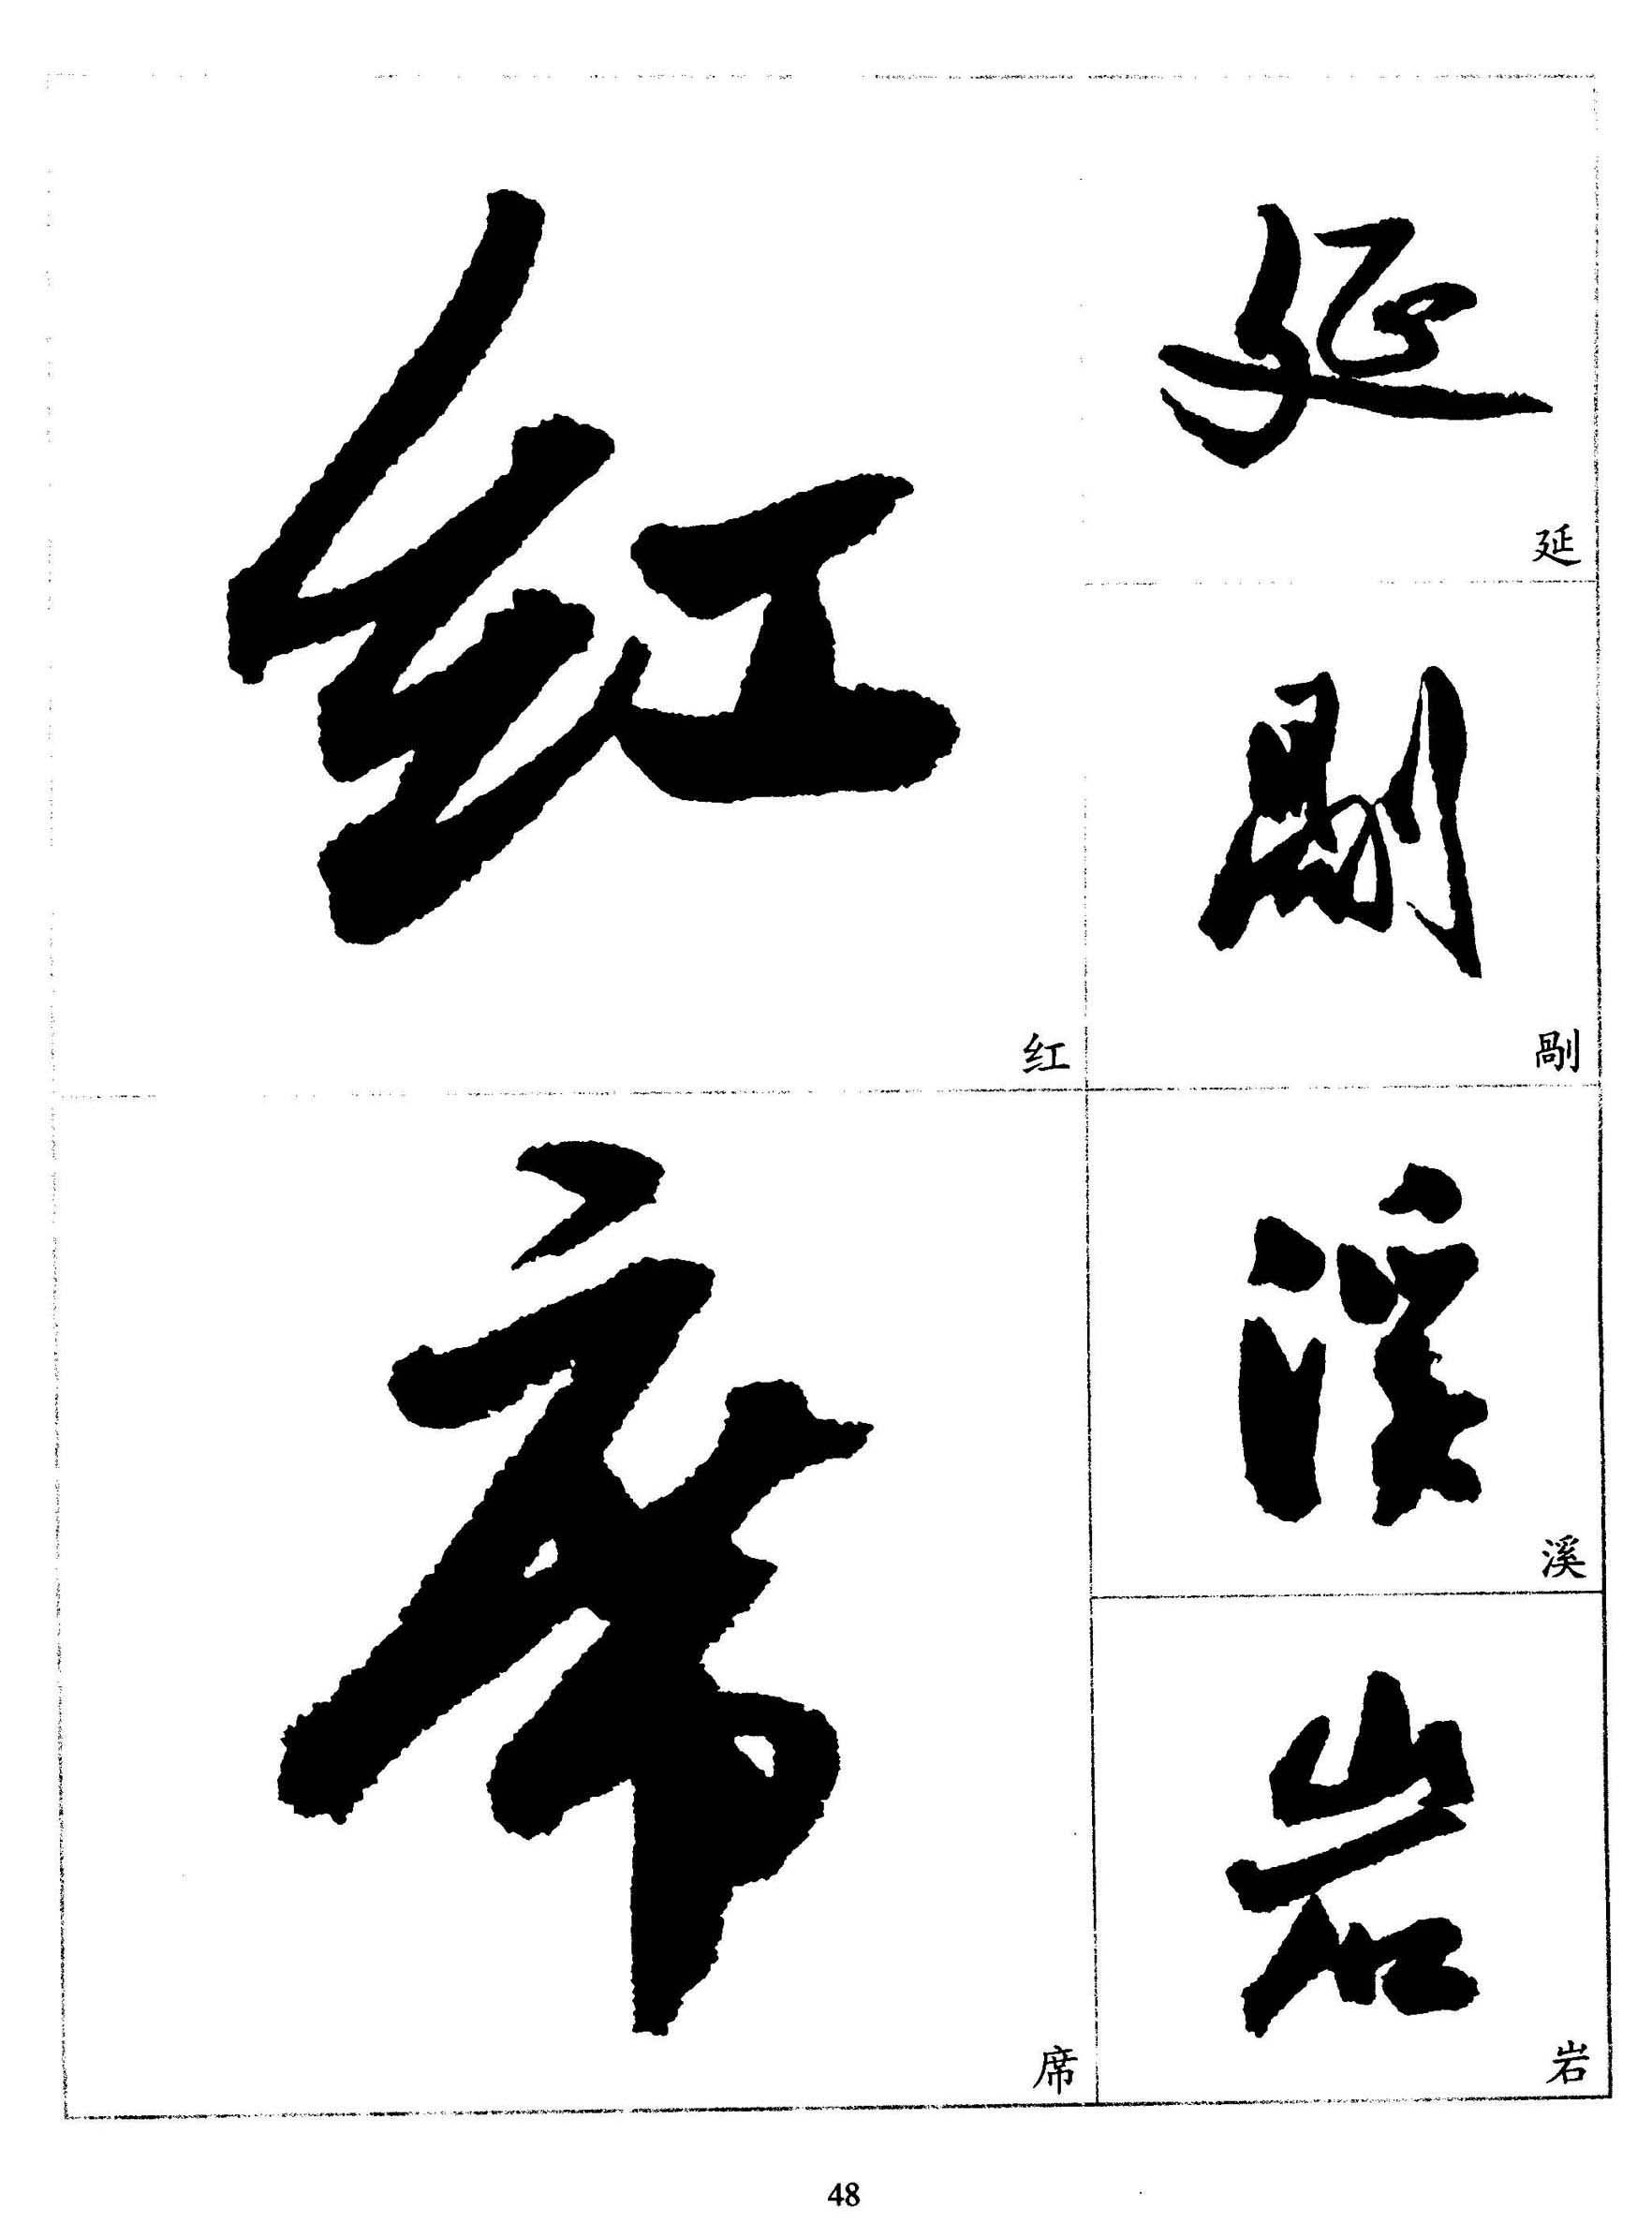 延
延
剮
剮
溪
溪
岩
岩
红
红
席
席
48